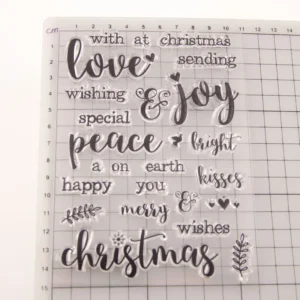 cm 1 2 3 4 5 6 7 8 9 10 11
with at christmas
love sending
wishing & joy
special
peace bright
a on earth
happy you kisses
merry &
wishes
christmas
1
2
3
4
5
6
7
8
9
10
11
12
13
14
15